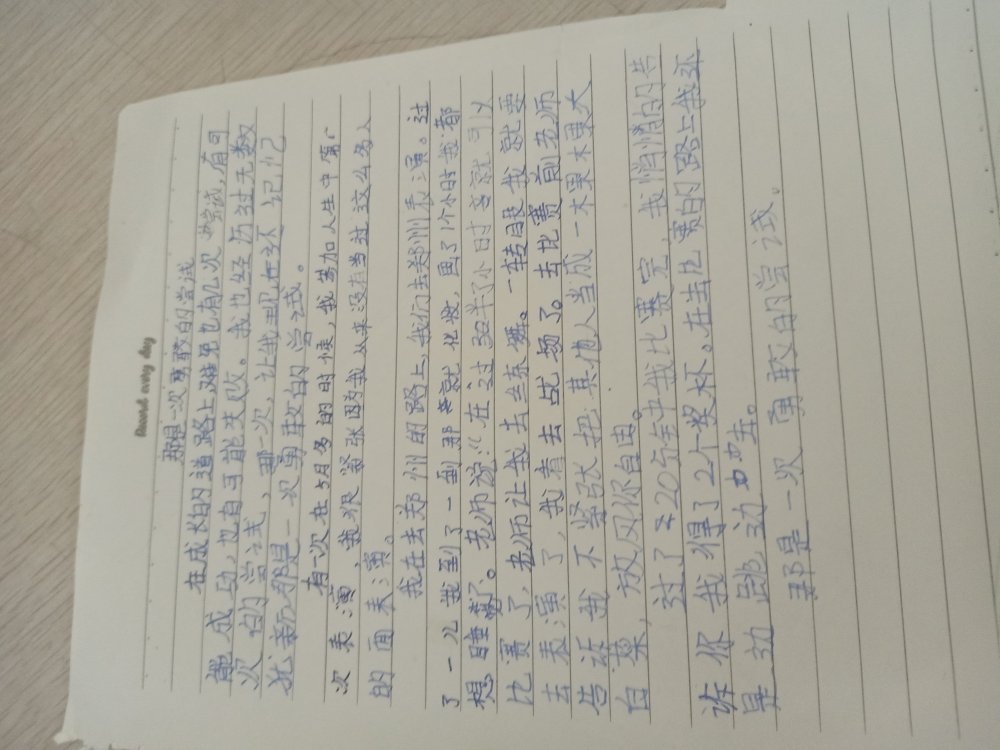 Record every day
那是一次勇敢的尝试
在成长的道路上,难免也有几次尝试,有可
能成功,也有可能失败。我也经历过无数
次的尝试,那一次,让我现在还记忆
犹新那是一次勇敢的尝试。
有一次在5月多的时候,我参加人生中第一
次表演,我很紧张因为我从来没有当过这么多人
的面表演。
我在去郑州的路上,我们去郑州表演。过
了一儿我到了一到那老就化妆,画了1个小时我都
想睡觉了。老师说:“在过30半个小时老就可以
比赛了,老师让我去练舞。一转眼我就要
去表演了,我着去战场了。去比赛前老师
告诉我不紧张把其他人当成一木果木果大
白菜,放风你自由。
过了20分钟我比赛完,我悄悄的告
诉你我得了2个奖杯。在去比赛的路上我还
是动跳动
那是一次勇敢的尝试.